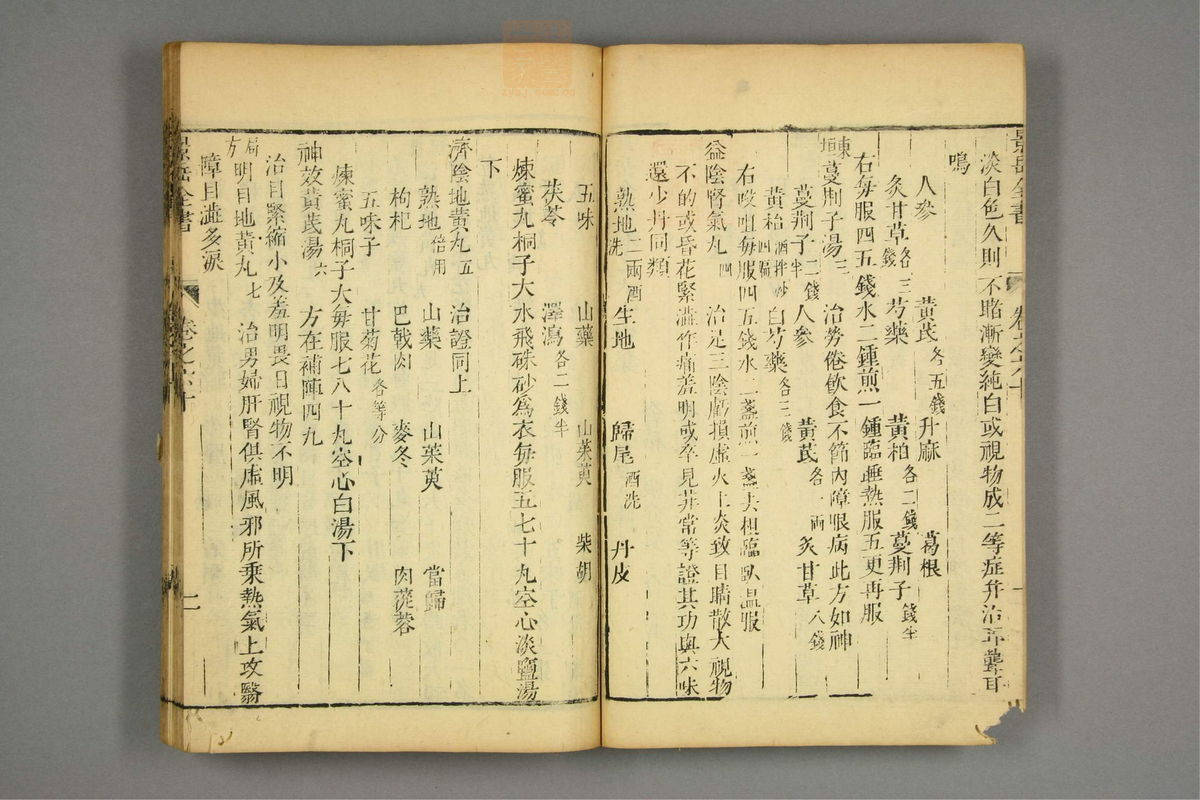 景岳全書 卷之六十
淡白色久則不睹漸變純白或視物成二等症并治耳聾耳
鳴
人參 黃芪各五錢 升麻 葛根
炙甘草各三錢 芍藥 黃柏各二錢 蔓荊子錢半
右每服四五錢水二鍾煎一鍾臨睡熱服五更再服
東垣蔓荊子湯三 治勞倦飲食不節內障眼病此方如神
蔓荊子二錢半 人參 黃芪各一兩 炙甘草八錢
黃柏酒拌炒四遍 白芍藥各三錢
右㕮咀每服四五錢水二盞煎一盞去柤臨臥温服
益陰腎氣丸四 治足三陰虧損虛火上炎致目睛散大視物
不的或昏花緊澁作痛羞明或卒見非常等證其功與六味
還少丹同類
熟地二兩酒洗 生地 歸尾酒洗 丹皮
五味 山藥 山茱萸 柴胡
茯苓 澤瀉各二錢半
煉蜜丸桐子大水飛硃砂爲衣每服五七十丸空心淡鹽湯
下
濟陰地黃丸五 治證同上
熟地倍用 山藥 山茱萸 當歸
枸杞 巴戟肉 麥冬 肉蓯蓉
五味子 甘菊花各等分
煉蜜丸桐子大每服七八十丸空心白湯下
神效黃芪湯六 方在補陣四九
治目緊縮小及羞明畏日視物不明
局方明目地黃丸七 治男婦肝腎俱虛風邪所乘熱氣上攻翳
障目澁多淚
景岳全書 卷之六十 二